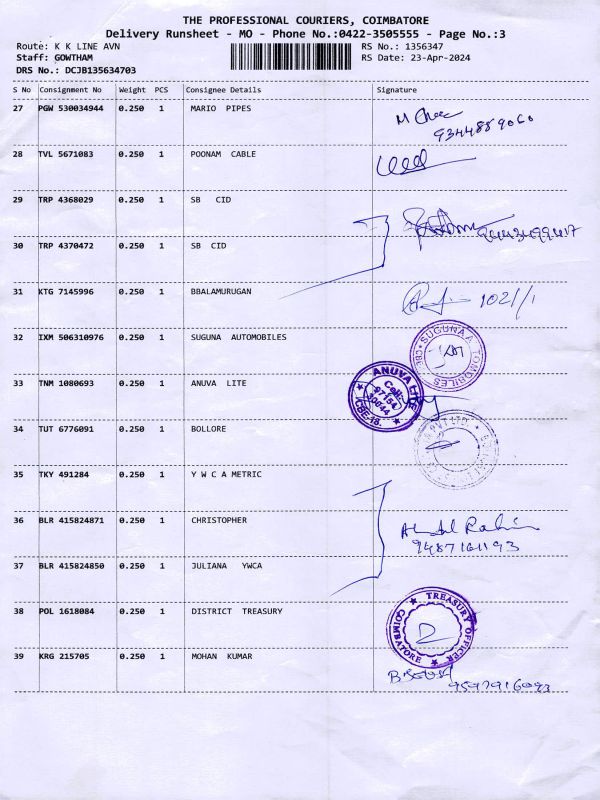 THE PROFESSIONAL COURIERS, COIMBATORE
Delivery Runsheet - MO - Phone No.:0422-3505555 - Page No.:3
Route: K K LINE AVN RS No.: 1356347
Staff: GOWTHAM RS Date: 23-Apr-2024
DRS No.: DCJB135634703
S No Consignment No Weight PCS Consignee Details Signature
27 PGW 530034944 0.250 1 MARIO PIPES
9344889060
28 TVL 5671083 0.250 1 POONAM CABLE
29 TRP 4368029 0.250 1 SB CID
30 TRP 4370472 0.250 1 SB CID
31 KTG 7145996 0.250 1 BBALAMURUGAN
1021/1
32 IXM 506310976 0.250 1 SUGUNA AUTOMOBILES
33 TNM 1080693 0.250 1 ANUVA LITE
ANUVA LITE
Cell:
CBE-18.
34 TUT 6776091 0.250 1 BOLLORE
35 TKY 491284 0.250 1 Y W C A METRIC
36 BLR 415824871 0.250 1 CHRISTOPHER
9487161193
37 BLR 415824850 0.250 1 JULIANA YWCA
38 POL 1618084 0.250 1 DISTRICT TREASURY
TREASURY OFFICER
COIMBATORE
39 KRG 215705 0.250 1 MOHAN KUMAR